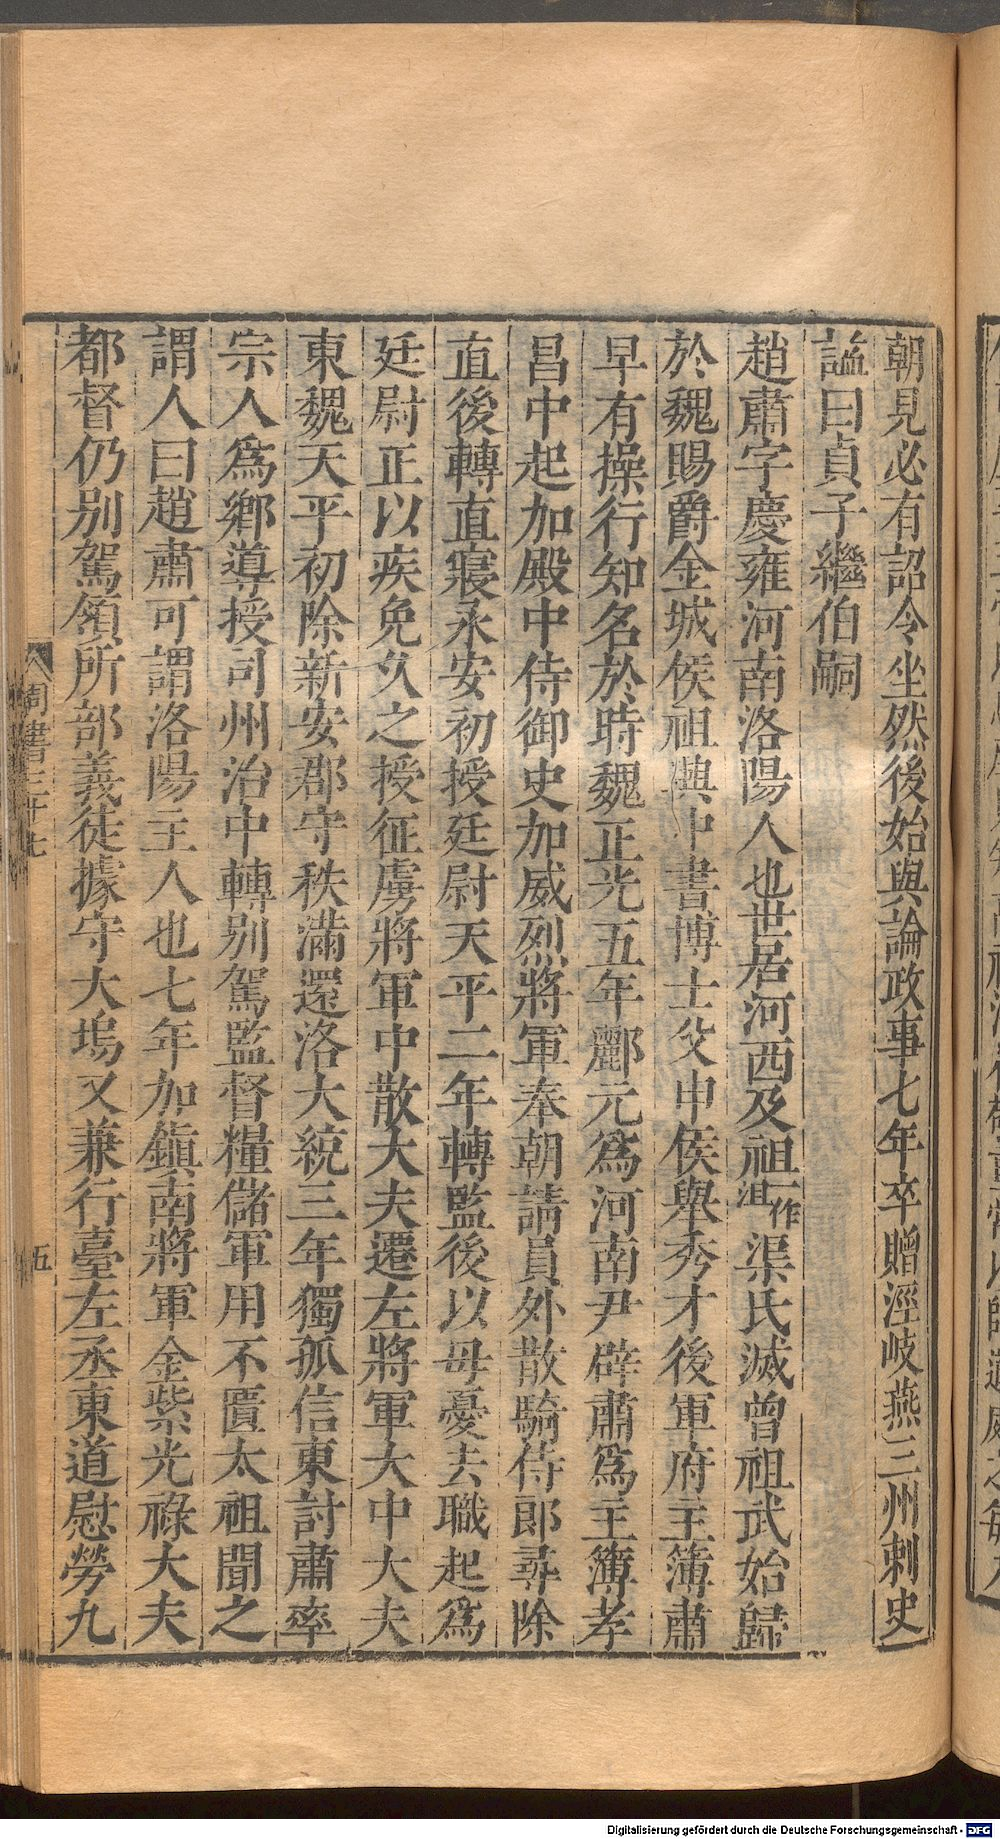 朝見必有詔令坐然後始與論政事七年卒贈涇岐燕三州刺史
謚曰貞子繼伯嗣
趙肅字慶雍河南洛陽人也世居河西及祖一作沮渠氏滅曾祖武始歸
於魏賜爵金城侯祖興中書博士父申侯舉秀才後軍府主簿肅
早有操行知名於時魏正光五年酈元爲河南尹辟肅爲主簿孝
昌中起加殿中侍御史加威烈將軍奉朝請員外散騎侍郎尋除
直後轉直寢永安初授廷尉天平二年轉監後以母憂去職起爲
廷尉正以疾免久之授征虜將軍中散大夫遷左將軍大中大夫
東魏天平初除新安郡守秩滿還洛大統三年獨孤信東討肅率
宗人爲鄉導授司州治中轉別駕監督糧儲軍用不匱太祖聞之
謂人曰趙肅可謂洛陽主人也七年加鎮南將軍金紫光祿大夫
都督仍別駕領所部義徒據守大塢又兼行臺左丞東道慰勞九
周書三十七
五
Digitalisierung gefördert durch die Deutsche Forschungsgemeinschaft - DFG